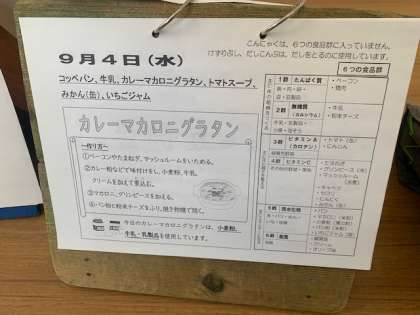 こんにゃくは、6つの食品群に入っていません。
けずりぶし、だしこんぶは、だしをとるのに使用しています。
9月4日(水)
コッペパン、牛乳、カレーマカロニグラタン、トマトスープ、
みかん(缶)、いちごジャム
カレーマカロニグラタン
~作り方~
①ベーコンやたまねぎ、マッシュルームをいためる。
②カレー粉などで味付けをし、小麦粉、牛乳、
クリームを加えて煮込む。
③マカロニ、グリンピースを加える。
④パン粉と粉末チーズをふり、焼き物機で焼く。
今日のカレーマカロニグラタンは、小麦粉、
牛乳・乳製品を使用しています。
6つの食品群
1群 たんぱく質
・ベーコン
・鶏肉
2群 無機質
(カルシウム)
・牛乳
・粉末チーズ
3群 ビタミンA
(カロテン)
・トマト(缶)
・にんじん
4群 ビタミンC
・たまねぎ
・グリンピース(冷)
・マッシュルーム
・キャベツ
・セロリ
・にんにく
5群 炭水化物
・パン
・マカロニ
・小麦粉
・パン粉
・いちごジャム
6群 脂質